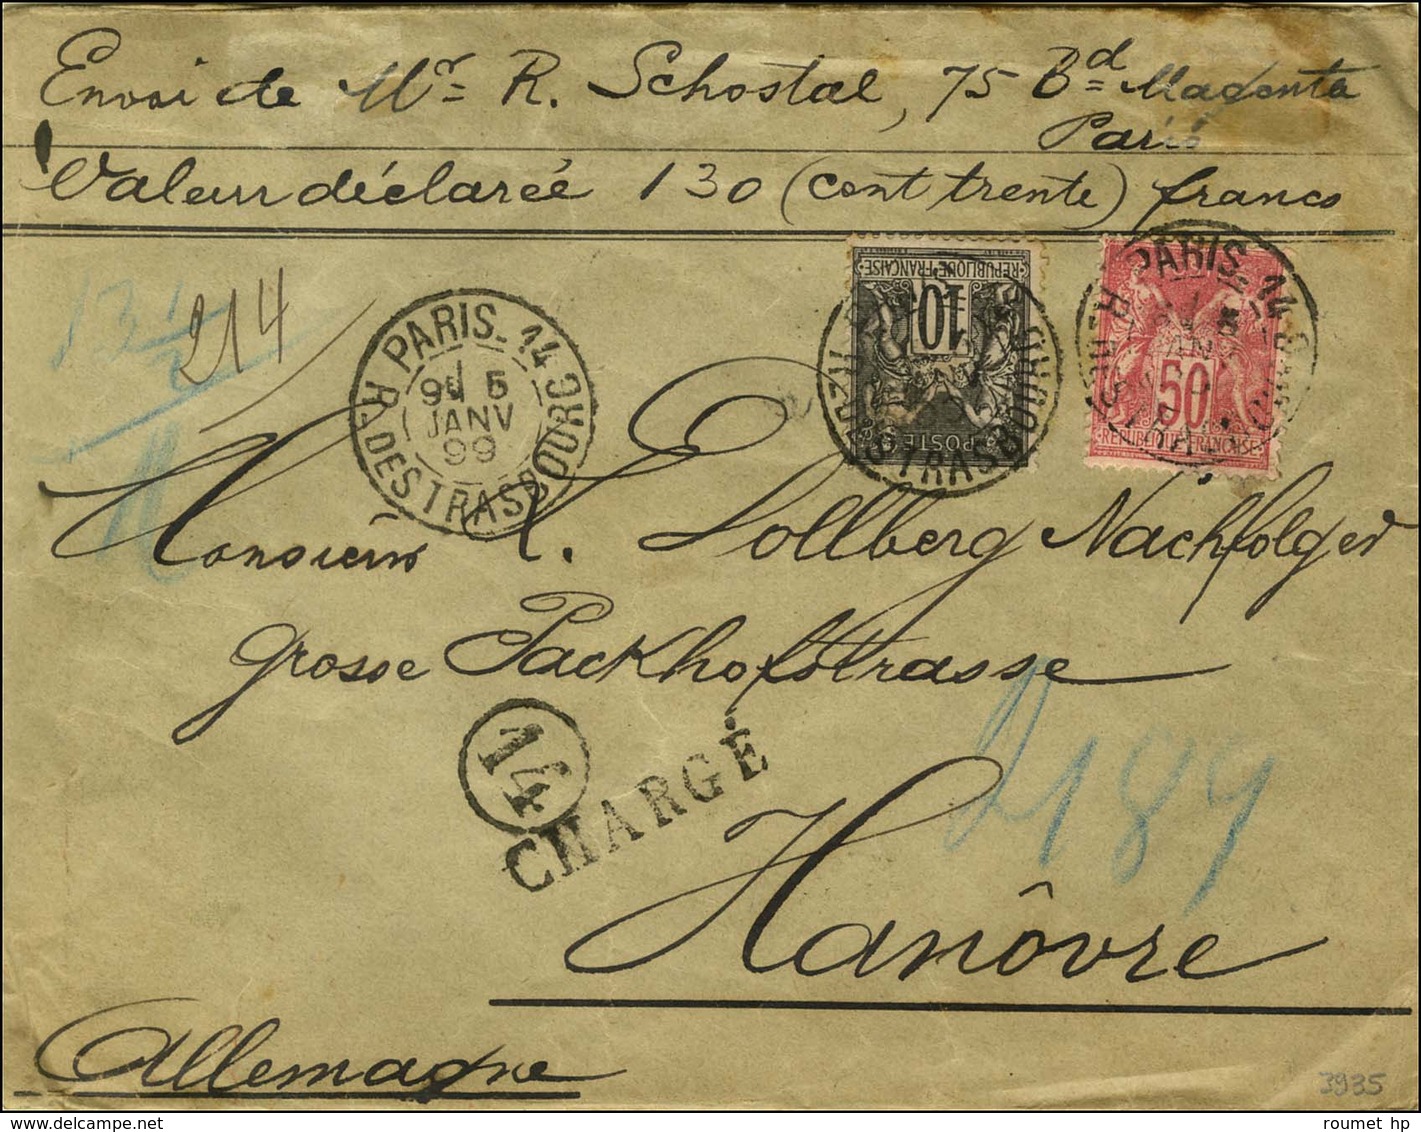 Envoi de Mr R. Schostal, 75 Bd Magenta
Paris
Valeur déclarée 130 (cent trente) francs
13 1/2
214
PARIS. 14
R. DES TRASBOURG
JANV
99
REPUBLIQUE FRANÇAISE
10
POSTE
PARIS. 14
50
REPUBLIQUE FRANÇAISE
Monsieur L. Dollberg Nachfolger
grosse Packhofstrasse
14
CHARGÉ
189
Hanôvre
Allemagne
3935
roumet hp